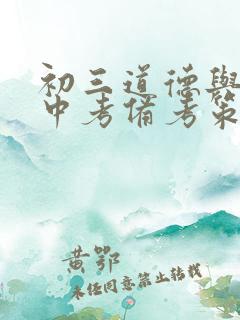 初三道德与
中考备考策
黄鄂
未经同意禁止转载